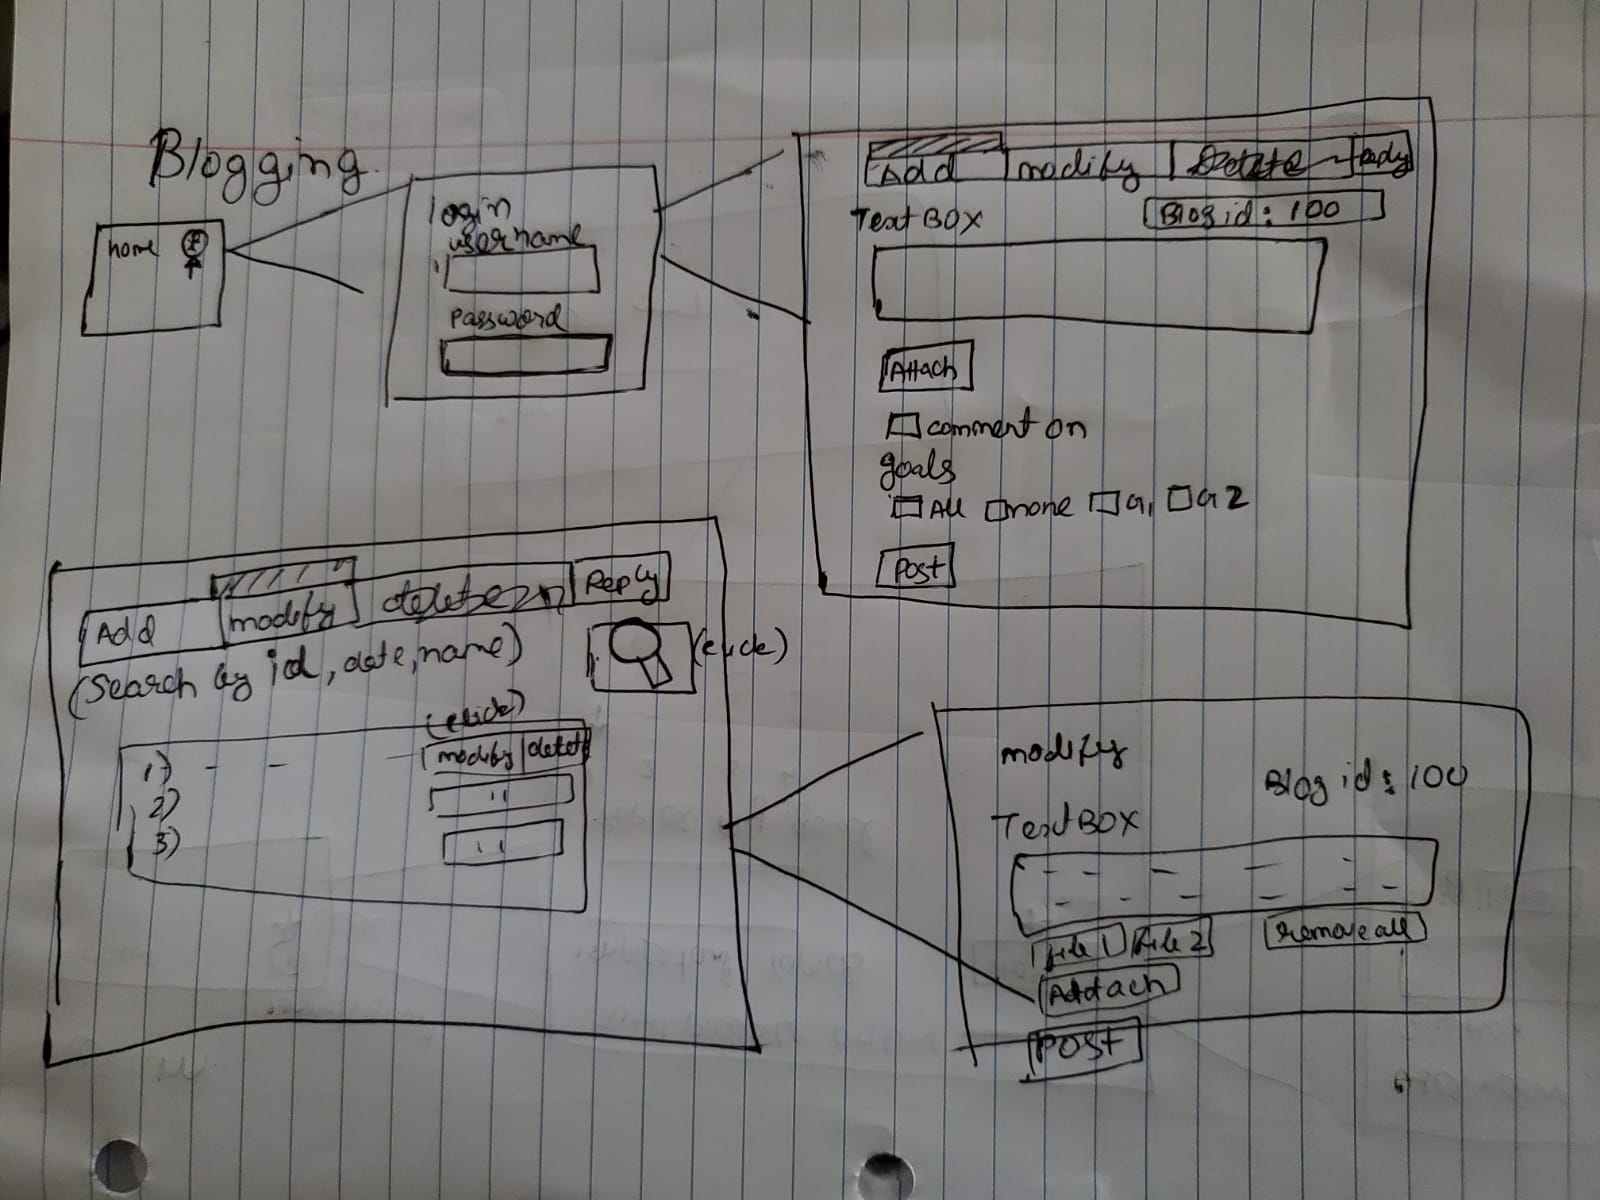 Blogging
home
login
username
password
Add modify Reply
Text BOX Blog id : 100
Attach
comment on
goals
All none G1 G2
Post
Add modify Reply
(Search by id, date, name) (click)
(click)
1) - - - modify delete
2) "
3) - "
modify
Blog id : 100
Text BOX
- - - - -
- - - - - -
file 1 file 2 remove all
Addach
POST